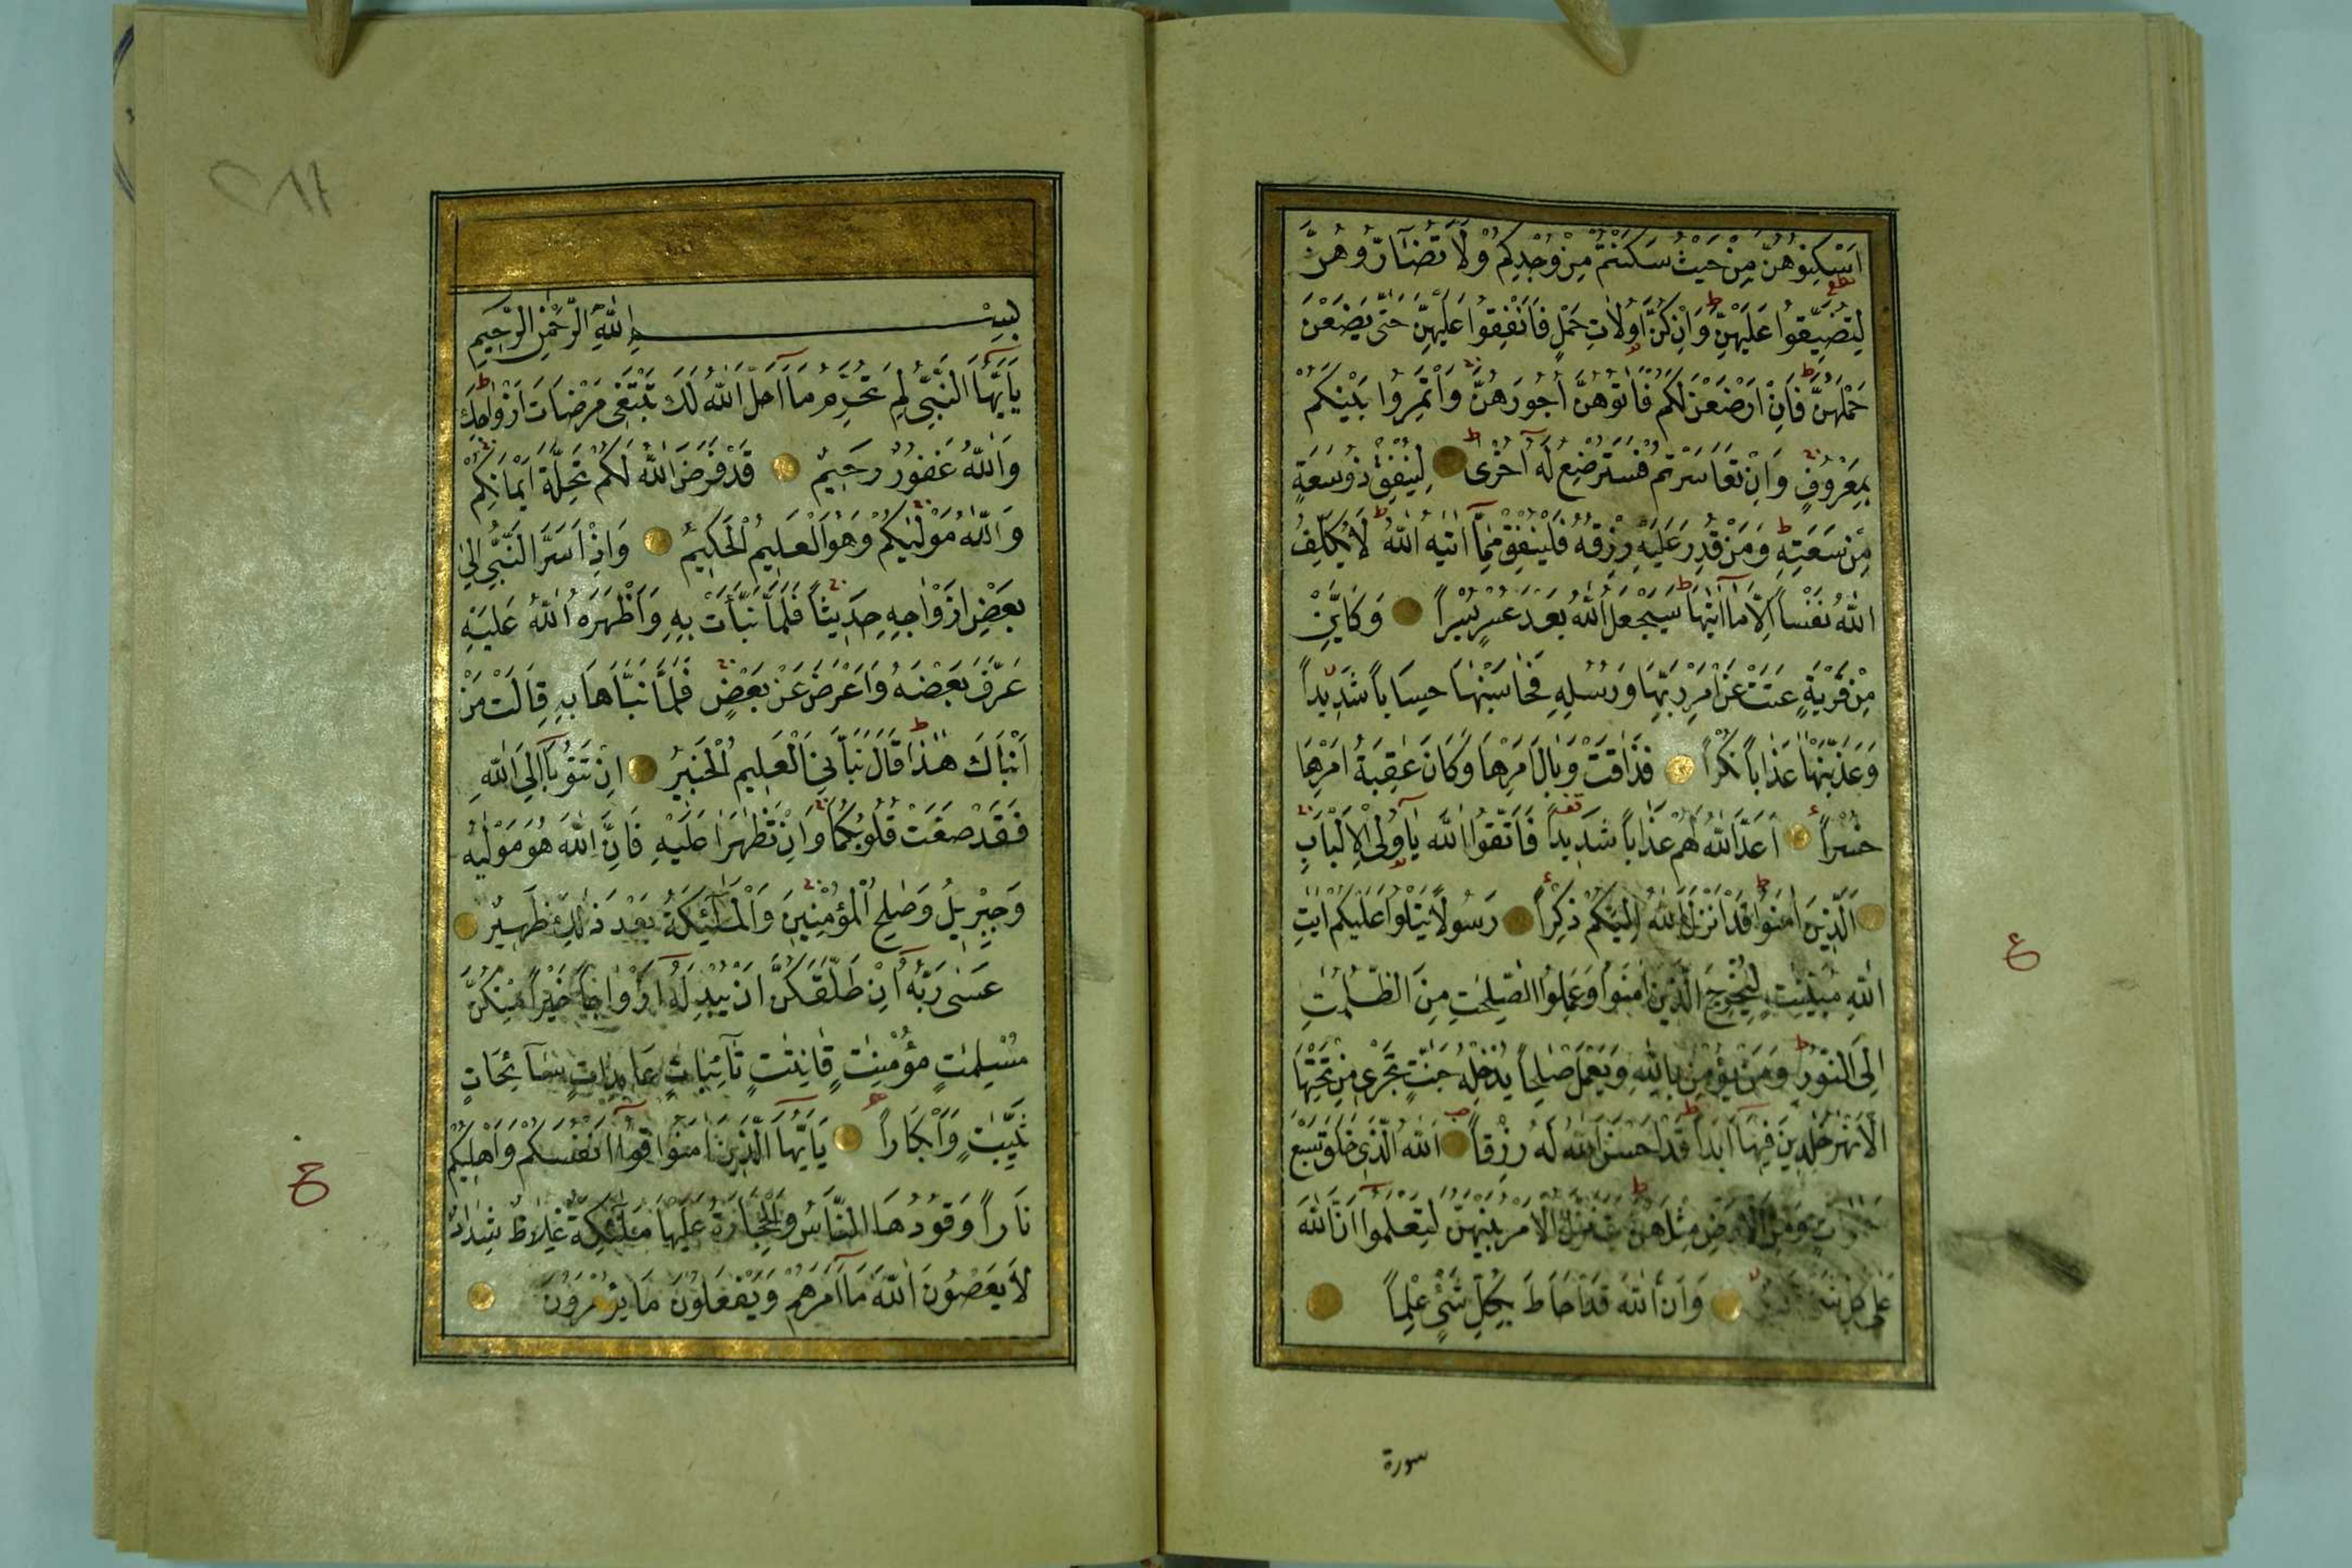 اَسْكِنُوهُنَّ مِنْ حَيْثُ سَكَنْتُمْ مِنْ وُجْدِكُمْ وَلَا تُضَآرُّوهُنَّ
لِتُضَيِّقُوا عَلَيْهِنَّ وَاِنْ كُنَّ اُولَاتِ حَمْلٍ فَاَنْفِقُوا عَلَيْهِنَّ حَتّٰى يَضَعْنَ
حَمْلَهُنَّ فَاِنْ اَرْضَعْنَ لَكُمْ فَاٰتُوهُنَّ اُجُورَهُنَّ وَاْتَمِرُوا بَيْنَكُمْ
بِمَعْرُوفٍ وَاِنْ تَعَاسَرْتُمْ فَسَتُرْضِعُ لَهُ اُخْرٰى لِيُنْفِقْ ذُو سَعَةٍ
مِنْ سَعَتِهِ وَمَنْ قُدِرَ عَلَيْهِ رِزْقُهُ فَلْيُنْفِقْ مِمَّا اٰتٰيهُ اللّٰهُ لَا يُكَلِّفُ
اللّٰهُ نَفْساً اِلَّا مَا اٰتٰيهَا سَيَجْعَلُ اللّٰهُ بَعْدَ عُسْرٍ يُسْراً وَكَاَيِّنْ
مِنْ قَرْيَةٍ عَتَتْ عَنْ اَمْرِ رَبِّهَا وَرُسُلِهِ فَحَاسَبْنٰهَا حِسَاباً شَدِيداً
وَعَذَّبْنٰهَا عَذَاباً نُكْراً فَذَاقَتْ وَبَالَ اَمْرِهَا وَكَانَ عٰقِبَةُ اَمْرِهَا
خُسْراً اَعَدَّ اللّٰهُ لَهُمْ عَذَاباً شَدِيداً فَاتَّقُوا اللّٰهَ يَا اُولِى الْاَلْبَابِ
اَلَّذِينَ اٰمَنُوا قَدْ اَنْزَلَ اللّٰهُ اِلَيْكُمْ ذِكْراً رَسُولاً يَتْلُوا عَلَيْكُمْ اٰيٰتِ
اللّٰهِ مُبَيِّنٰتٍ لِيُخْرِجَ الَّذِينَ اٰمَنُوا وَعَمِلُوا الصّٰلِحٰتِ مِنَ الظُّلُمٰتِ
اِلَى النُّورِ وَمَنْ يُؤْمِنْ بِاللّٰهِ وَيَعْمَلْ صٰلِحاً يُدْخِلْهُ جَنّٰتٍ تَجْرِى مِنْ تَحْتِهَا
الْاَنْهٰرُ خٰلِدِينَ فِيهَا اَبَداً قَدْ اَحْسَنَ اللّٰهُ لَهُ رِزْقاً اَللّٰهُ الَّذِى خَلَقَ سَبْعَ
وَمِنَ الْاَرْضِ مِثْلَهُنَّ يَتَنَزَّلُ الْاَمْرُ بَيْنَهُنَّ لِتَعْلَمُوا اَنَّ اللّٰهَ
عَلٰى كُلِّ وَاَنَّ اللّٰهَ قَدْ اَحَاطَ بِكُلِّ شَىْءٍ عِلْماً
سورة
ع
٢٨٦
بِسْمِ اللّٰهِ الرَّحْمٰنِ الرَّحِيمِ
يَا اَيُّهَا النَّبِىُّ لِمَ تُحَرِّمُ مَا اَحَلَّ اللّٰهُ لَكَ تَبْتَغِى مَرْضَاتَ اَزْوَاجِكَ
وَاللّٰهُ غَفُورٌ رَحِيمٌ قَدْ فَرَضَ اللّٰهُ لَكُمْ تَحِلَّةَ اَيْمَانِكُمْ
وَاللّٰهُ مَوْلٰيكُمْ وَهُوَ الْعَلِيمُ الْحَكِيمُ وَاِذْ اَسَرَّ النَّبِىُّ اِلٰى
بَعْضِ اَزْوَاجِهِ حَدِيثاً فَلَمَّا نَبَّاَتْ بِهِ وَاَظْهَرَهُ اللّٰهُ عَلَيْهِ
عَرَّفَ بَعْضَهُ وَاَعْرَضَ عَنْ بَعْضٍ فَلَمَّا نَبَّاَهَا بِهِ قَالَتْ مَنْ
اَنْبَاَكَ هٰذَا قَالَ نَبَّاَنِىَ الْعَلِيمُ الْخَبِيرُ اِنْ تَتُوبَا اِلَى اللّٰهِ
فَقَدْ صَغَتْ قُلُوبُكُمَا وَاِنْ تَظٰهَرَا عَلَيْهِ فَاِنَّ اللّٰهَ هُوَ مَوْلٰيهُ
وَجِبْرِيلُ وَصٰلِحُ الْمُؤْمِنِينَ وَالْمَلٰٓئِكَةُ بَعْدَ ذٰلِكَ ظَهِيرٌ
عَسٰى رَبُّهُ اِنْ طَلَّقَكُنَّ اَنْ يُبْدِلَهُ اَزْوَاجاً خَيْراً مِنْكُنَّ
مُسْلِمٰتٍ مُؤْمِنٰتٍ قَانِتٰتٍ تَآئِبَاتٍ عَابِدَاتٍ سَآئِحَاتٍ
ثَيِّبٰتٍ وَاَبْكَاراً يَا اَيُّهَا الَّذِينَ اٰمَنُوا قُوا اَنْفُسَكُمْ وَاَهْلِيكُمْ
نَاراً وَقُودُهَا النَّاسُ وَالْحِجَارَةُ عَلَيْهَا مَلٰٓئِكَةٌ غِلَاظٌ شِدَادٌ
لَا يَعْصُونَ اللّٰهَ مَا اَمَرَهُمْ وَيَفْعَلُونَ مَا يُؤْمَرُونَ
ع